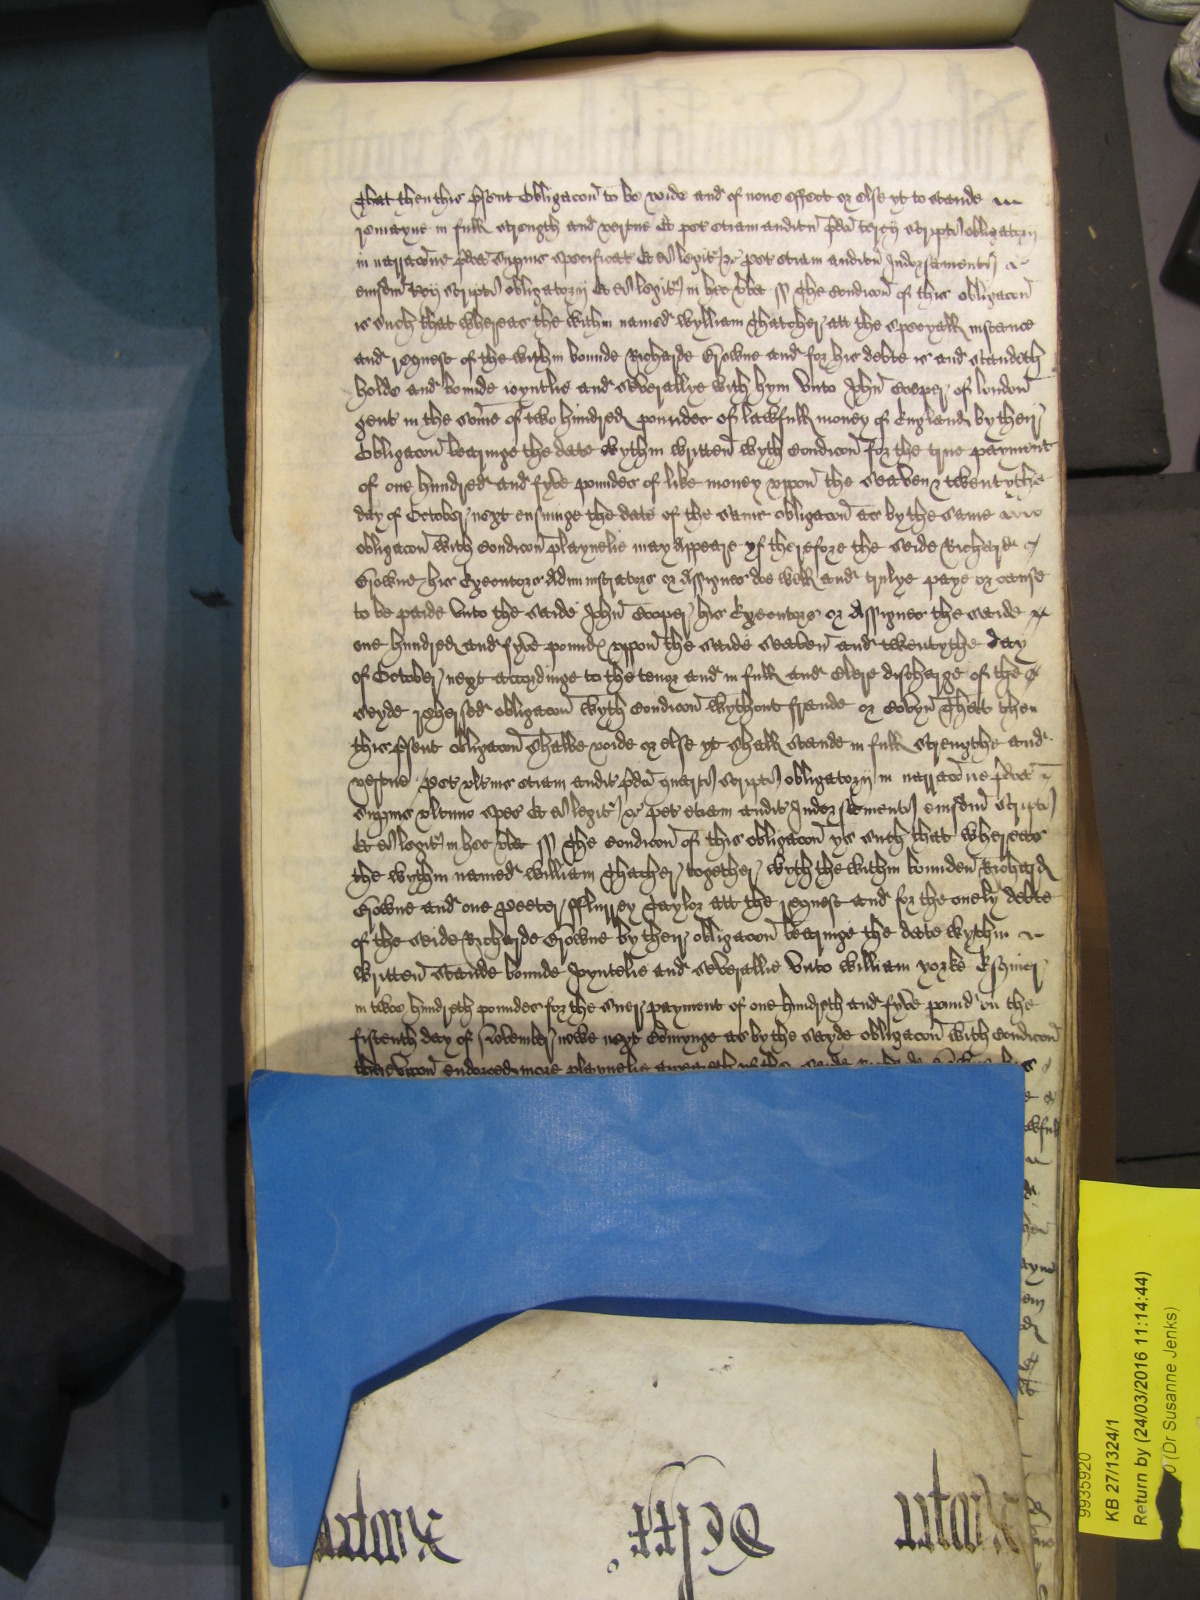 that then this psent Obligacon to be voide and of none effect or else yt to stande
remayne in full strength and vertue Et pet etiam auditu pdci tercij scripti obligatorij
in narracone pdca supius specificat Et ei legit &c pet etiam auditu Indorsamenti
eiusdm tcij scripti obligatorij Et ei legit in hec vba ss The condicon of this obligacon
is such that whereas the within named Wylliam Thatcher att the specyall instance
and request of the within bounde Richarde Growne and for his debte is and standeth
holde and bounde ioyntlie and severallye with hym unto John Cooper of london
gent in the some of two hundred poundes of lawfull money of England by their
Obligacon bearinge the date wythin written wyth condicon for the true payment
of one hundred and fyve poundes of like money uppon the seaven & twentythe
day of October next ensuinge the date of the same obligacon as by the same
obligacon with condicon playnelie may appeare yf therefore the seide Richard
Growne his Executors Administrators or Assignes doe well and trulye paye or cause
to be paide unto the saide John Cooper his Executors or Assignes the saide
one hundred and fyve pound uppon the saide seaven and twentythe day
of October next accordinge to the tenor and in full and clere discharge of the
seyde rehersed obligacon wyth condicon wythout fraude or covyn That then
this psent obligacon shalbe voide or else yt shall stande in full strengthe and
vertue pet ultius etiam audit pdci quarti scripti obligatorij in narracone pdca
supius ultimo spec Et ei legit &c pet etiam audit Indorsamenti eiusdm scripti
Et ei legit in hec vba ss The condicon of this obligacon ys such that whereas
the wythin named William Thacher together wyth the within bounden Richard
Growne and one Peeter fflurrey Taylor att the request and for the onely debte
of the seide Richarde Growne by their obligacon bearinge the date wythin
written stande bounde Joyntelie and severallie unto William Yorke Esquier
in twoo hundreth poundes for the suer payment of one hundreth and fyve pound on the
fiftenth day of November nowe next comynge as by the seyde obligacon with condicon
thereuppon endorced more playnelie appeareth
9935920
KB 27/1324/1
Return by (24/03/2016 11:14:44)
(Dr Susanne Jenks)